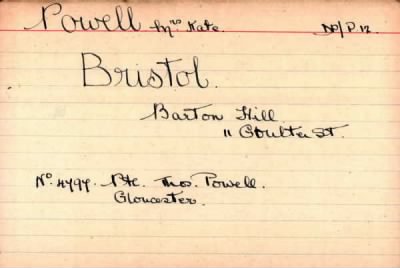 Powell Mrs Kate. NP/P 12.
Bristol.
Barton Hill.
11 Coulter St.
No. 4797. Pte. Thos. Powell.
Gloucester.